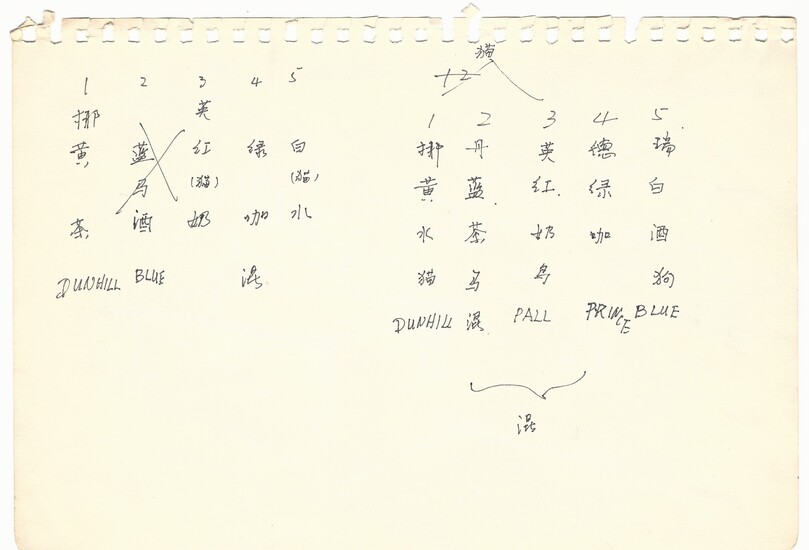 1 2 3 4 5
挪 英
黄 蓝 红 绿 白
马 (猫) (猫)
茶 酒 奶 咖 水
DUNHILL BLUE 混
猫
12
1 2 3 4 5
挪 丹 英 德 瑞
黄 蓝 红 绿 白
水 茶 奶 咖 酒
猫 马 鸟 狗
DUNHILL 混 PALL PRINCE BLUE
混